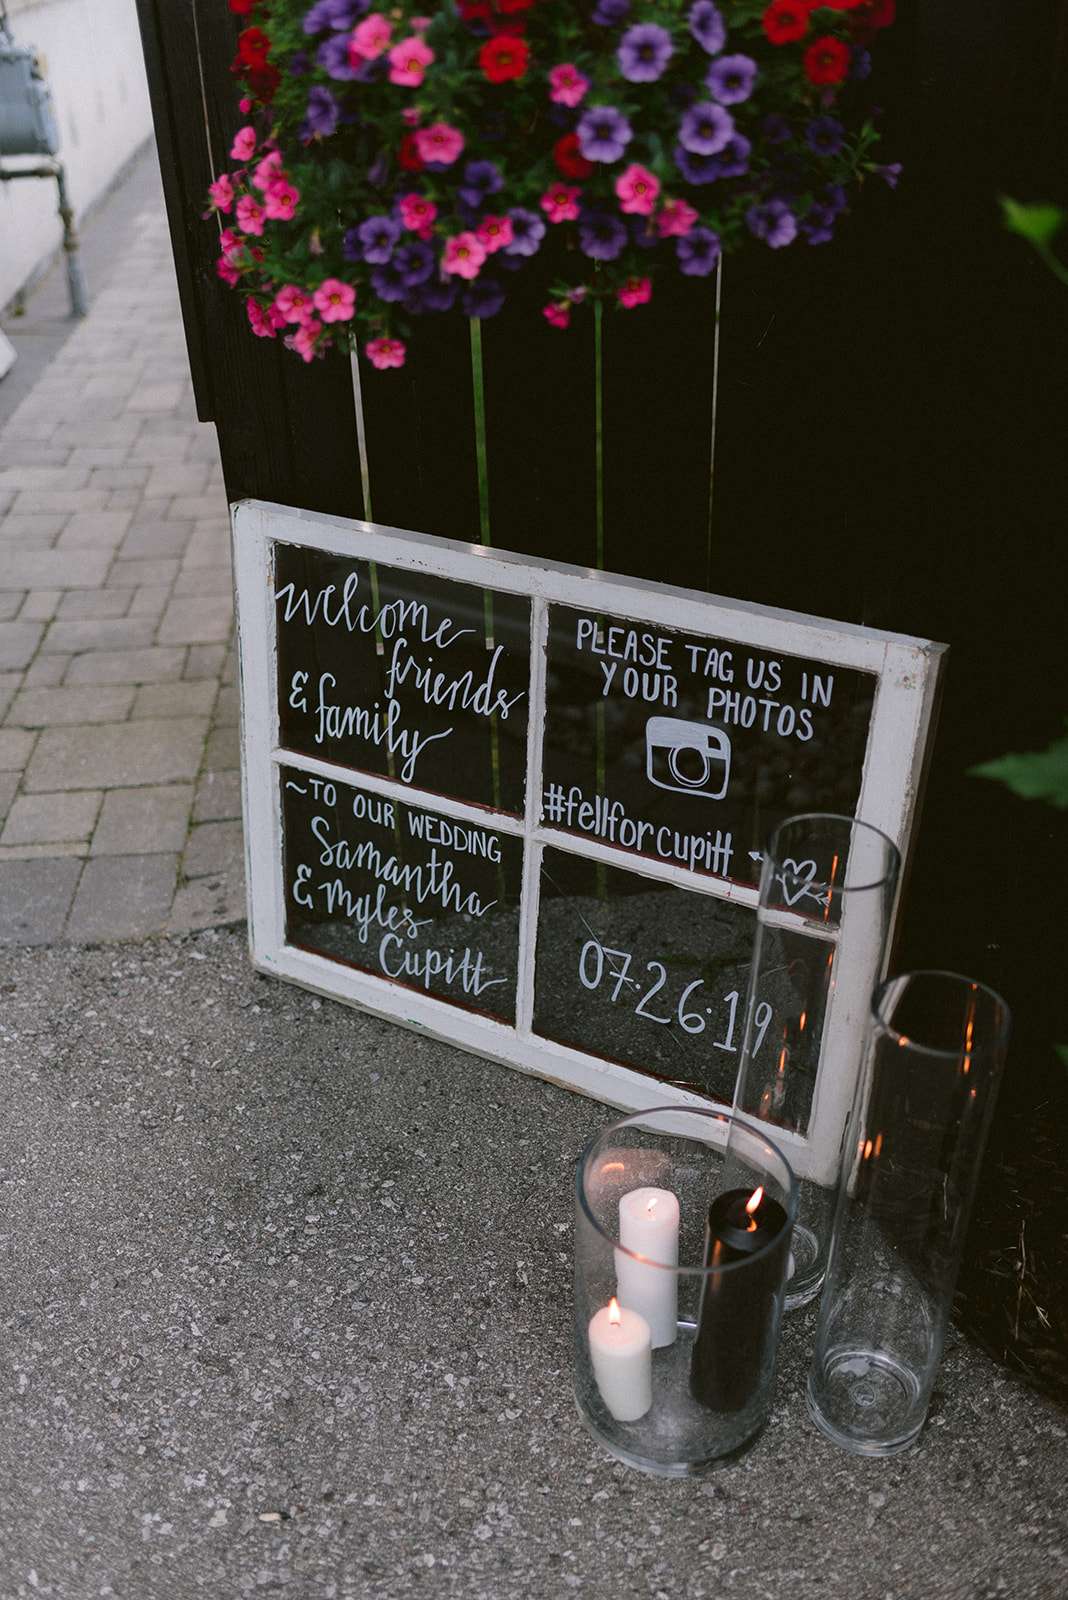 welcome
friends
& family
PLEASE TAG US IN
YOUR PHOTOS
#fellforcupitt
~TO OUR WEDDING
Samantha
& Myles
Cupitt
07.26.19